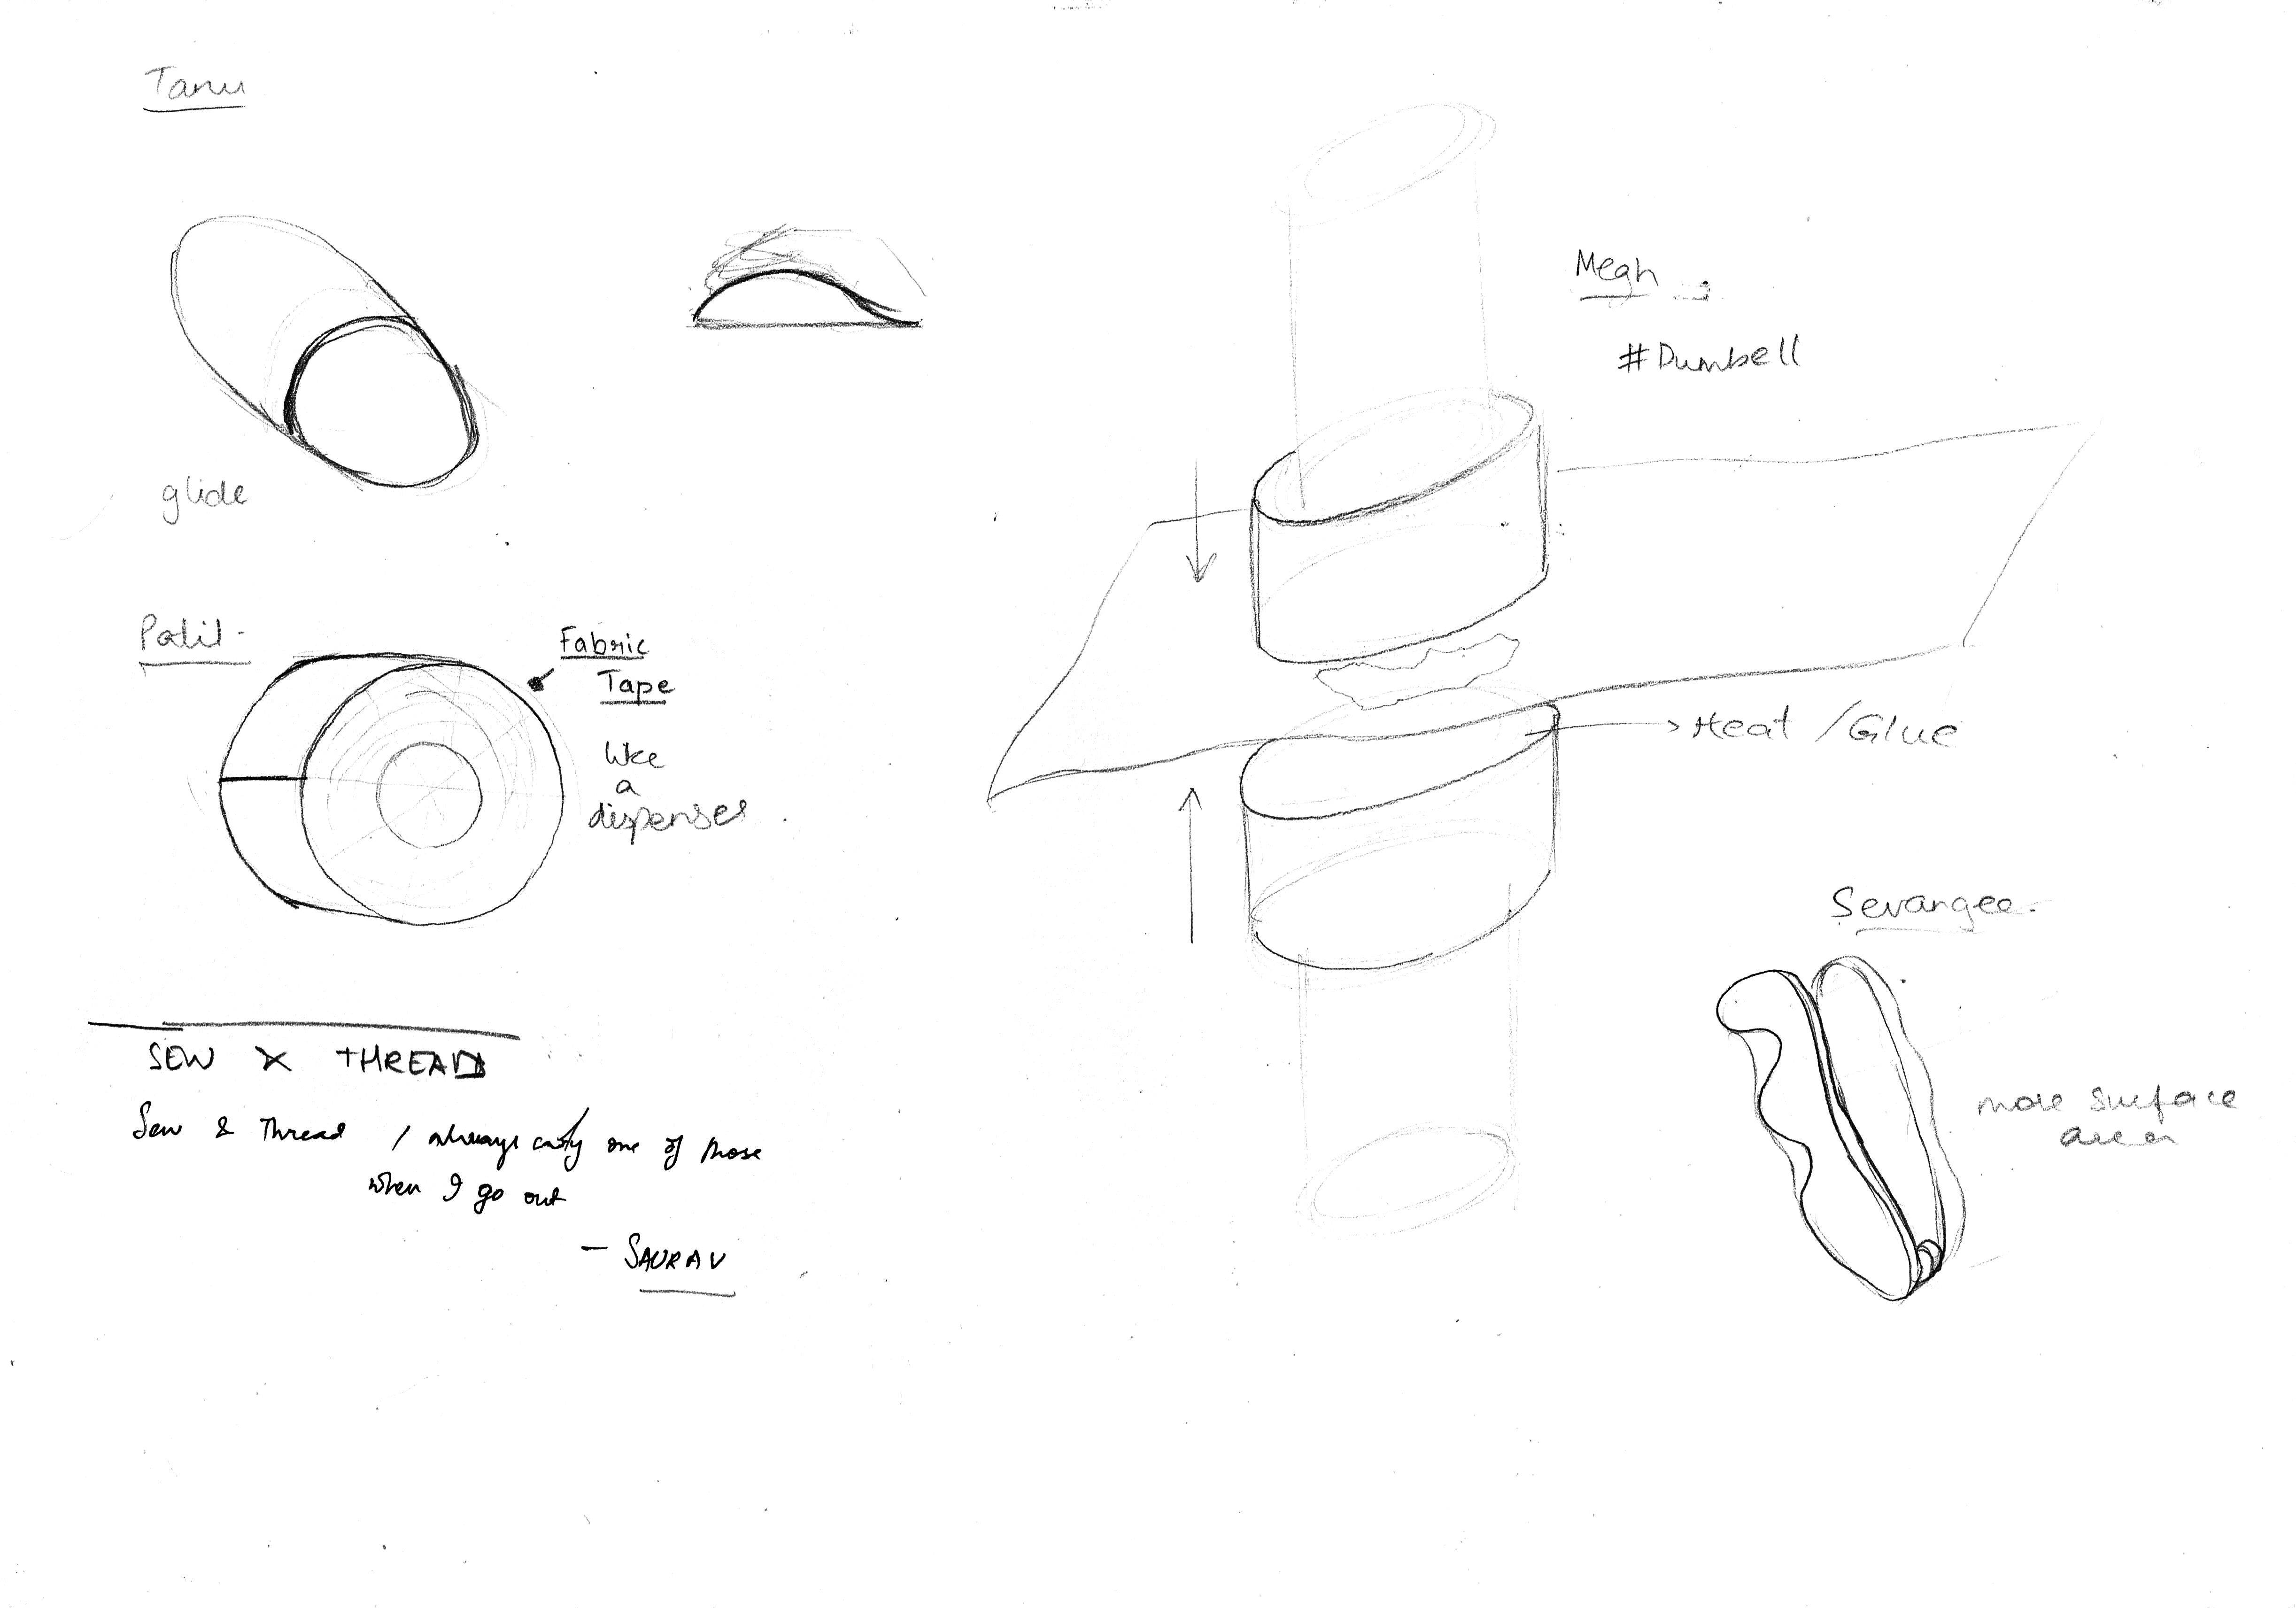 Tanu
glide
Palit -
Fabric
Tape
like
a
dispenser
SEW X THREAD
Sew & Thread / always carry one of those
when I go out
- SAURAV
Megh
#Dumbell
Heat / Glue
Sevangee -
more surface
area